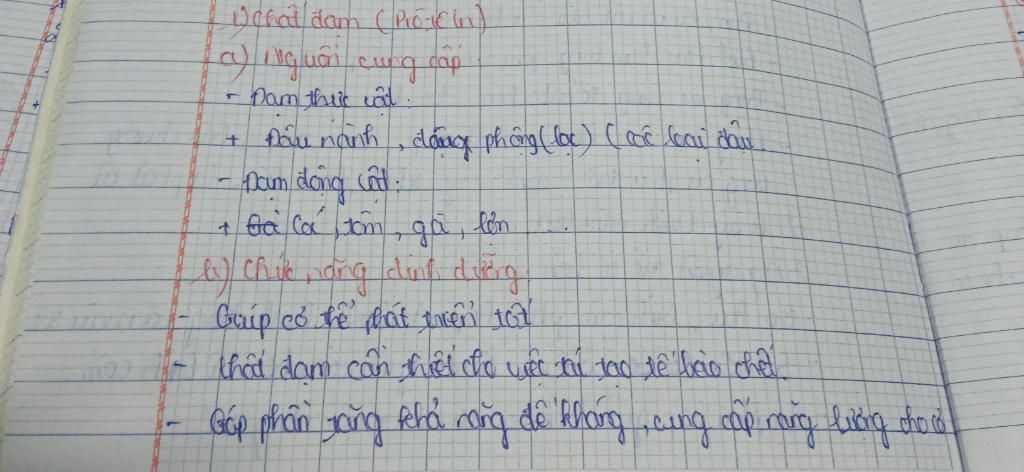 1) chất đạm (Prôtêin)
a) Nguồn cung cấp
- Đạm thực vật.
+ Đậu nành, đậu phộng (lạc) (các loại đậu
- Đạm động vật.
+ Cá, tôm, gà, lợn ...
b) Chức năng dinh dưỡng
- Giúp cơ thể phát triển tốt
- Chất đạm cần thiết cho việc tái tạo tế bào chết.
- Góp phần tăng khả năng đề kháng, cung cấp năng lượng cho cơ